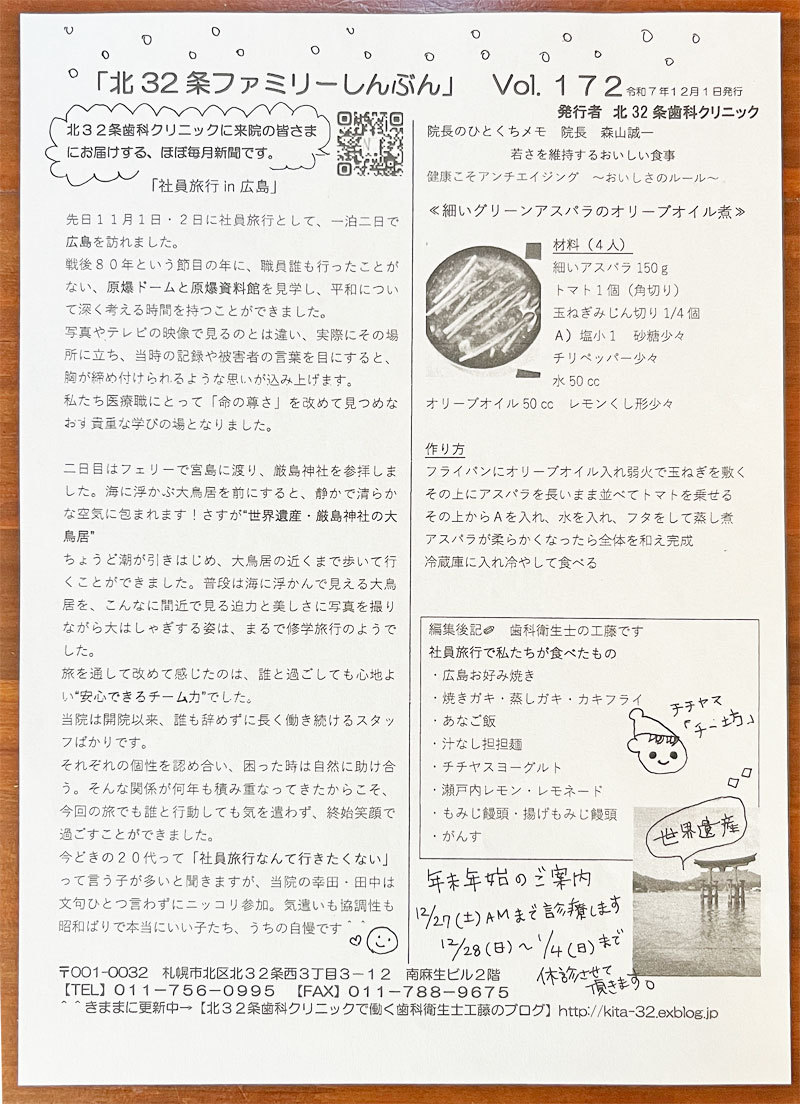 「北32条ファミリーしんぶん」 Vol.172 令和7年12月1日発行
発行者 北32条歯科クリニック
北32条歯科クリニックに来院の皆さま
にお届けする、ほぼ毎月新聞です。
「社員旅行 in 広島」
先日11月1日・2日に社員旅行として、一泊二日で
広島を訪れました。
戦後80年という節目の年に、職員誰も行ったことが
ない、原爆ドームと原爆資料館を見学し、平和につい
て深く考える時間を持つことができました。
写真やテレビの映像で見るのとは違い、実際にその場
所に立ち、当時の記録や被害者の言葉を目にすると、
胸が締め付けられるような思いが込み上げます。
私たち医療職にとって「命の尊さ」を改めて見つめな
おす貴重な学びの場となりました。
二日目はフェリーで宮島に渡り、厳島神社を参拝しま
した。海に浮かぶ大鳥居を前にすると、静かで清らか
な空気に包まれます！さすが“世界遺産・厳島神社の大
鳥居”
ちょうど潮が引きはじめ、大鳥居の近くまで歩いて行
くことができました。普段は海に浮かんで見える大鳥
居を、こんなに間近で見る迫力と美しさに写真を撮り
ながら大はしゃぎする姿は、まるで修学旅行のようで
した。
旅を通して改めて感じたのは、誰と過ごしても心地よ
い“安心できるチーム力”でした。
当院は開院以来、誰も辞めずに長く働き続けるスタッ
フばかりです。
それぞれの個性を認め合い、困った時は自然に助け合
う。そんな関係が何年も積み重なってきたからこそ、
今回の旅でも誰と行動しても気を遣わず、終始笑顔で
過ごすことができました。
今どきの20代って「社員旅行なんて行きたくない」
って言う子が多いと聞きますが、当院の幸田・田中は
文句ひとつ言わずにニッコリ参加。気遣いも協調性も
昭和ばりで本当にいい子たち、うちの自慢です＾＾
院長のひとくちメモ 院長 森山誠一
若さを維持するおいしい食事
健康こそアンチエイジング ～おいしさのルール～
≪細いグリーンアスパラのオリーブオイル煮≫
材料（4人）
細いアスパラ150g
トマト1個（角切り）
玉ねぎみじん切り1/4個
A）塩小1 砂糖少々
チリペッパー少々
水50cc
オリーブオイル50cc レモンくし形少々
作り方
フライパンにオリーブオイル入れ弱火で玉ねぎを敷く
その上にアスパラを長いまま並べてトマトを乗せる
その上からAを入れ、水を入れ、フタをして蒸し煮
アスパラが柔らかくなったら全体を和え完成
冷蔵庫に入れ冷やして食べる
編集後記 歯科衛生士の工藤です
社員旅行で私たちが食べたもの
・広島お好み焼き
・焼きガキ・蒸しガキ・カキフライ
・あなご飯
・汁なし担担麺
・チチヤスヨーグルト
・瀬戸内レモン・レモネード
・もみじ饅頭・揚げもみじ饅頭
・がんす
チチヤス
「チー坊」
世界遺産
年末年始のご案内
12/27(土)AMまで診療します
12/28(日)～1/4(日)まで
休診させて
頂きます。
〒001-0032 札幌市北区北32条西3丁目3－12 南麻生ビル2階
【TEL】011-756-0995 【FAX】011-788-9675
＾＾きままに更新中→【北32条歯科クリニックで働く歯科衛生士工藤のブログ】http://kita-32.exblog.jp